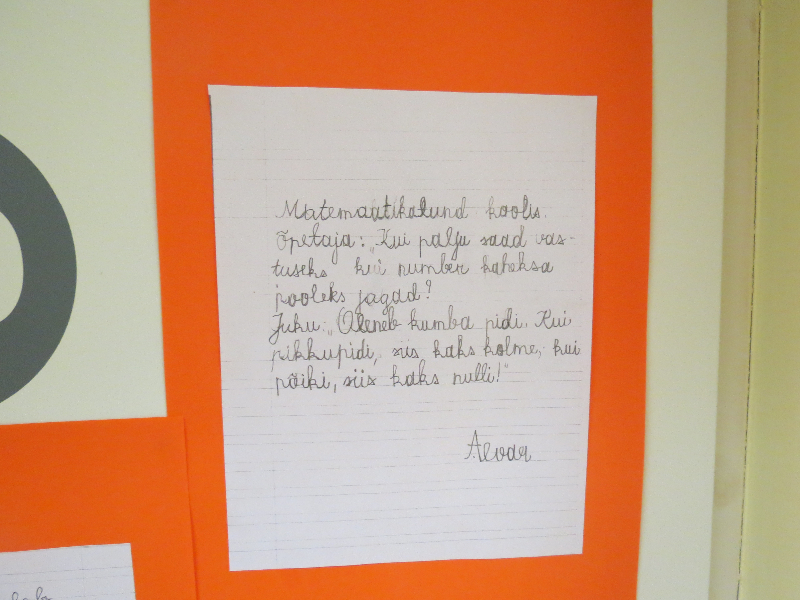 Matemaatikatund koolis.
Õpetaja: „Kui palju saad vas-
tuseks kui number kaheksa
pooleks jagad?
Juku: „Oleneb kumba pidi. Kui
pikkupidi, siis kaks kolme, kui
põiki, siis kaks nulli!"
Alvar